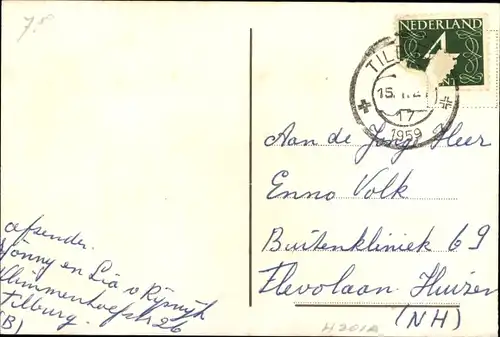 7.50
NEDERLAND
4
TIL
15.
17
1959
Aan de Jonge Heer
Enno Volk
Buitenkliniek 69
Flevolaan Huizen
(NH)
afzender.
Jonny en Lia v Rijswijk
Tilburg.
(B)
H201A